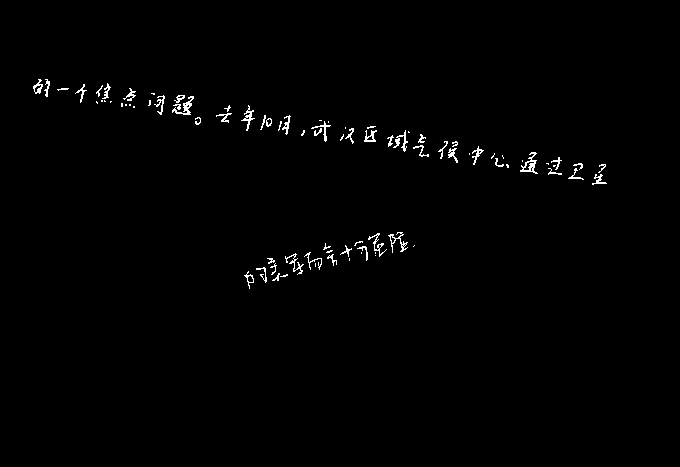 的一个焦点问题。去年10月,武汉区域气候中心通过卫星
的美军而言十分危险.